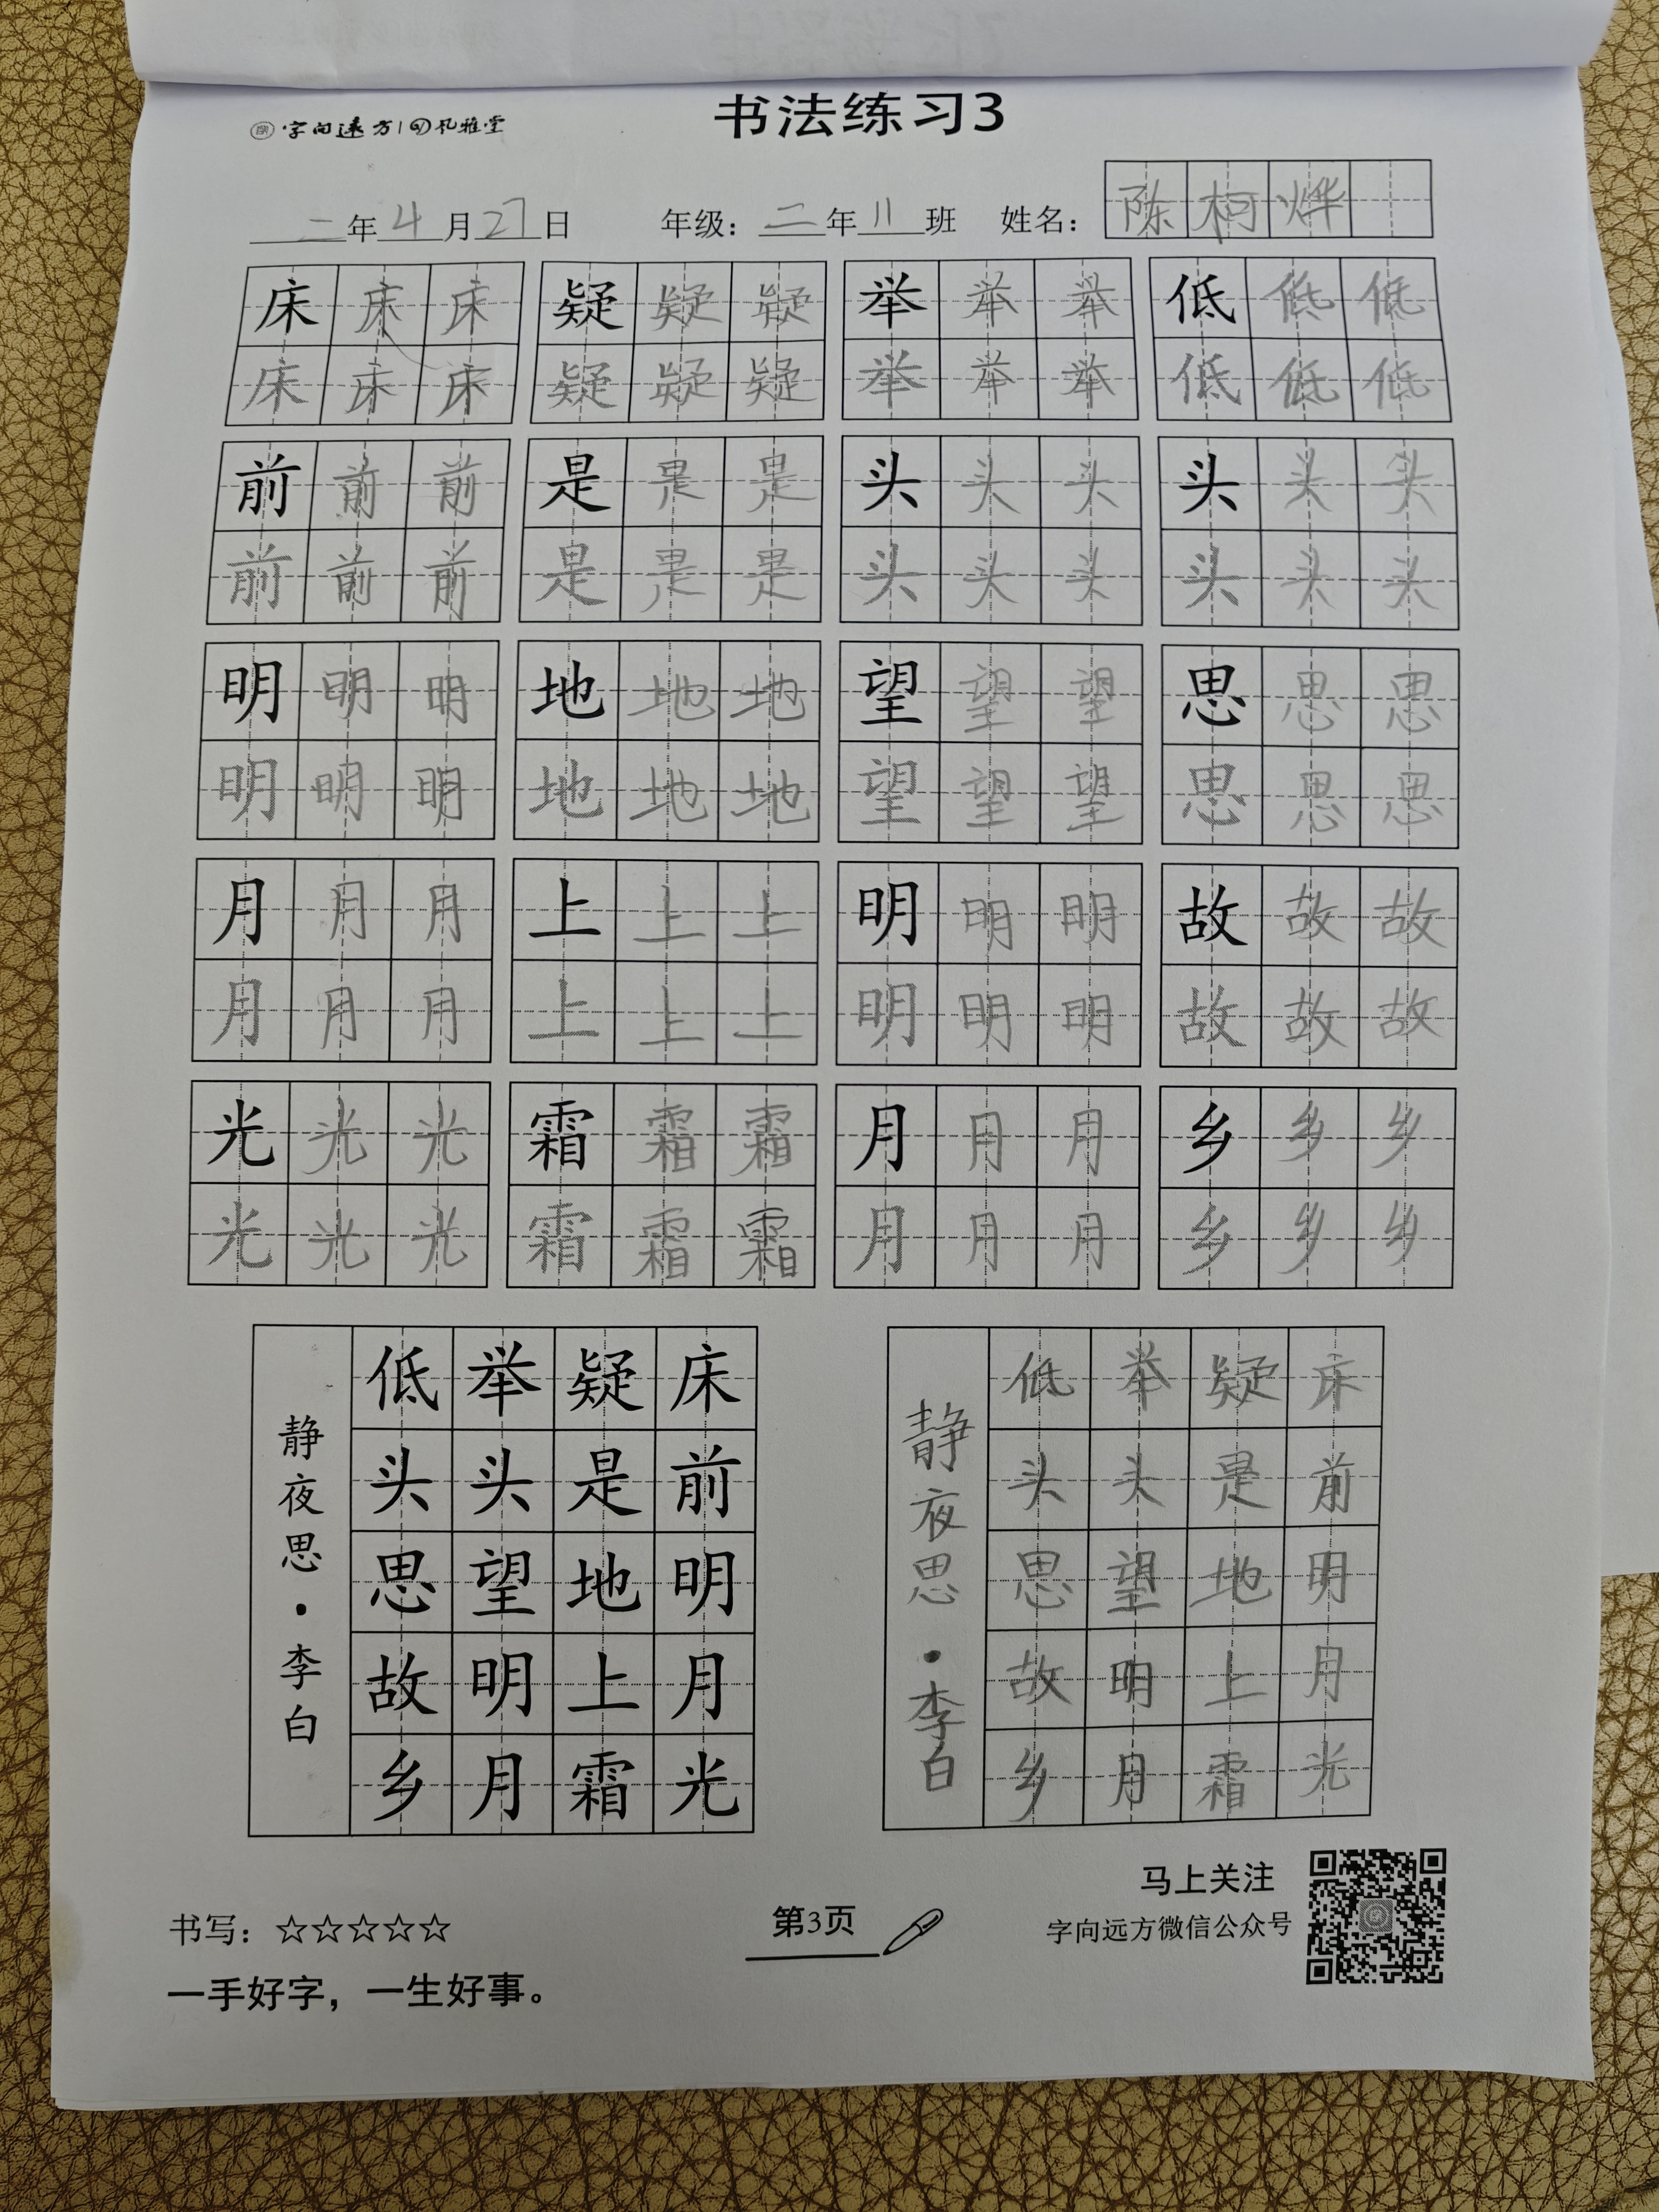 字向远方 孔雅堂
书法练习3
二年4月27日 年级：二年11班 姓名：陈柯烨
床床床 疑疑疑 举举举 低低低
床床床 疑疑疑 举举举 低低低
前前前 是是是 头头头 头头头
前前前 是是是 头头头 头头头
明明明 地地地 望望望 思思思
明明明 地地地 望望望 思思思
月月月 上上上 明明明 故故故
月月月 上上上 明明明 故故故
光光光 霜霜霜 月月月 乡乡乡
光光光 霜霜霜 月月月 乡乡乡
床前明月光
疑是地上霜
举头望明月
低头思故乡
静夜思·李白
床前明月光
疑是地上霜
举头望明月
低头思故乡
静夜思·李白
书写：☆☆☆☆☆
一手好字，一生好事。
第3页
马上关注
字向远方微信公众号